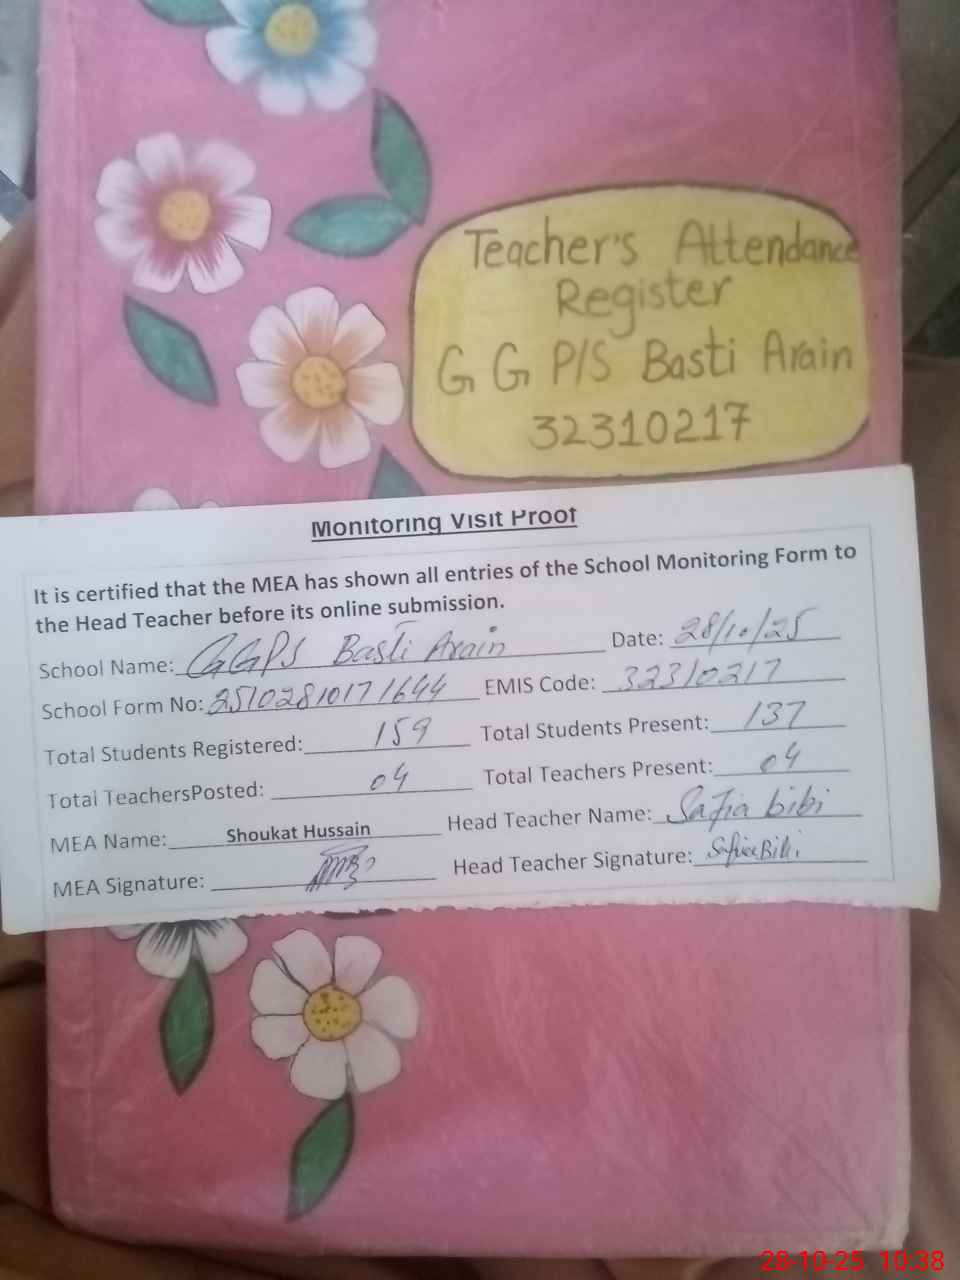 Teacher's Attendance
Register
G G P/S Basti Arain
32310217
Monitoring Visit Proof
It is certified that the MEA has shown all entries of the School Monitoring Form to
the Head Teacher before its online submission.
School Name: GGPS Basti Arain Date: 28/10/25
School Form No: 25102810171644 EMIS Code: 32310217
Total Students Registered: 159 Total Students Present: 137
Total TeachersPosted: 04 Total Teachers Present: 04
MEA Name: Shoukat Hussain Head Teacher Name: Safia bibi
MEA Signature: Head Teacher Signature: Safia Bibi
28-10-25 10:38